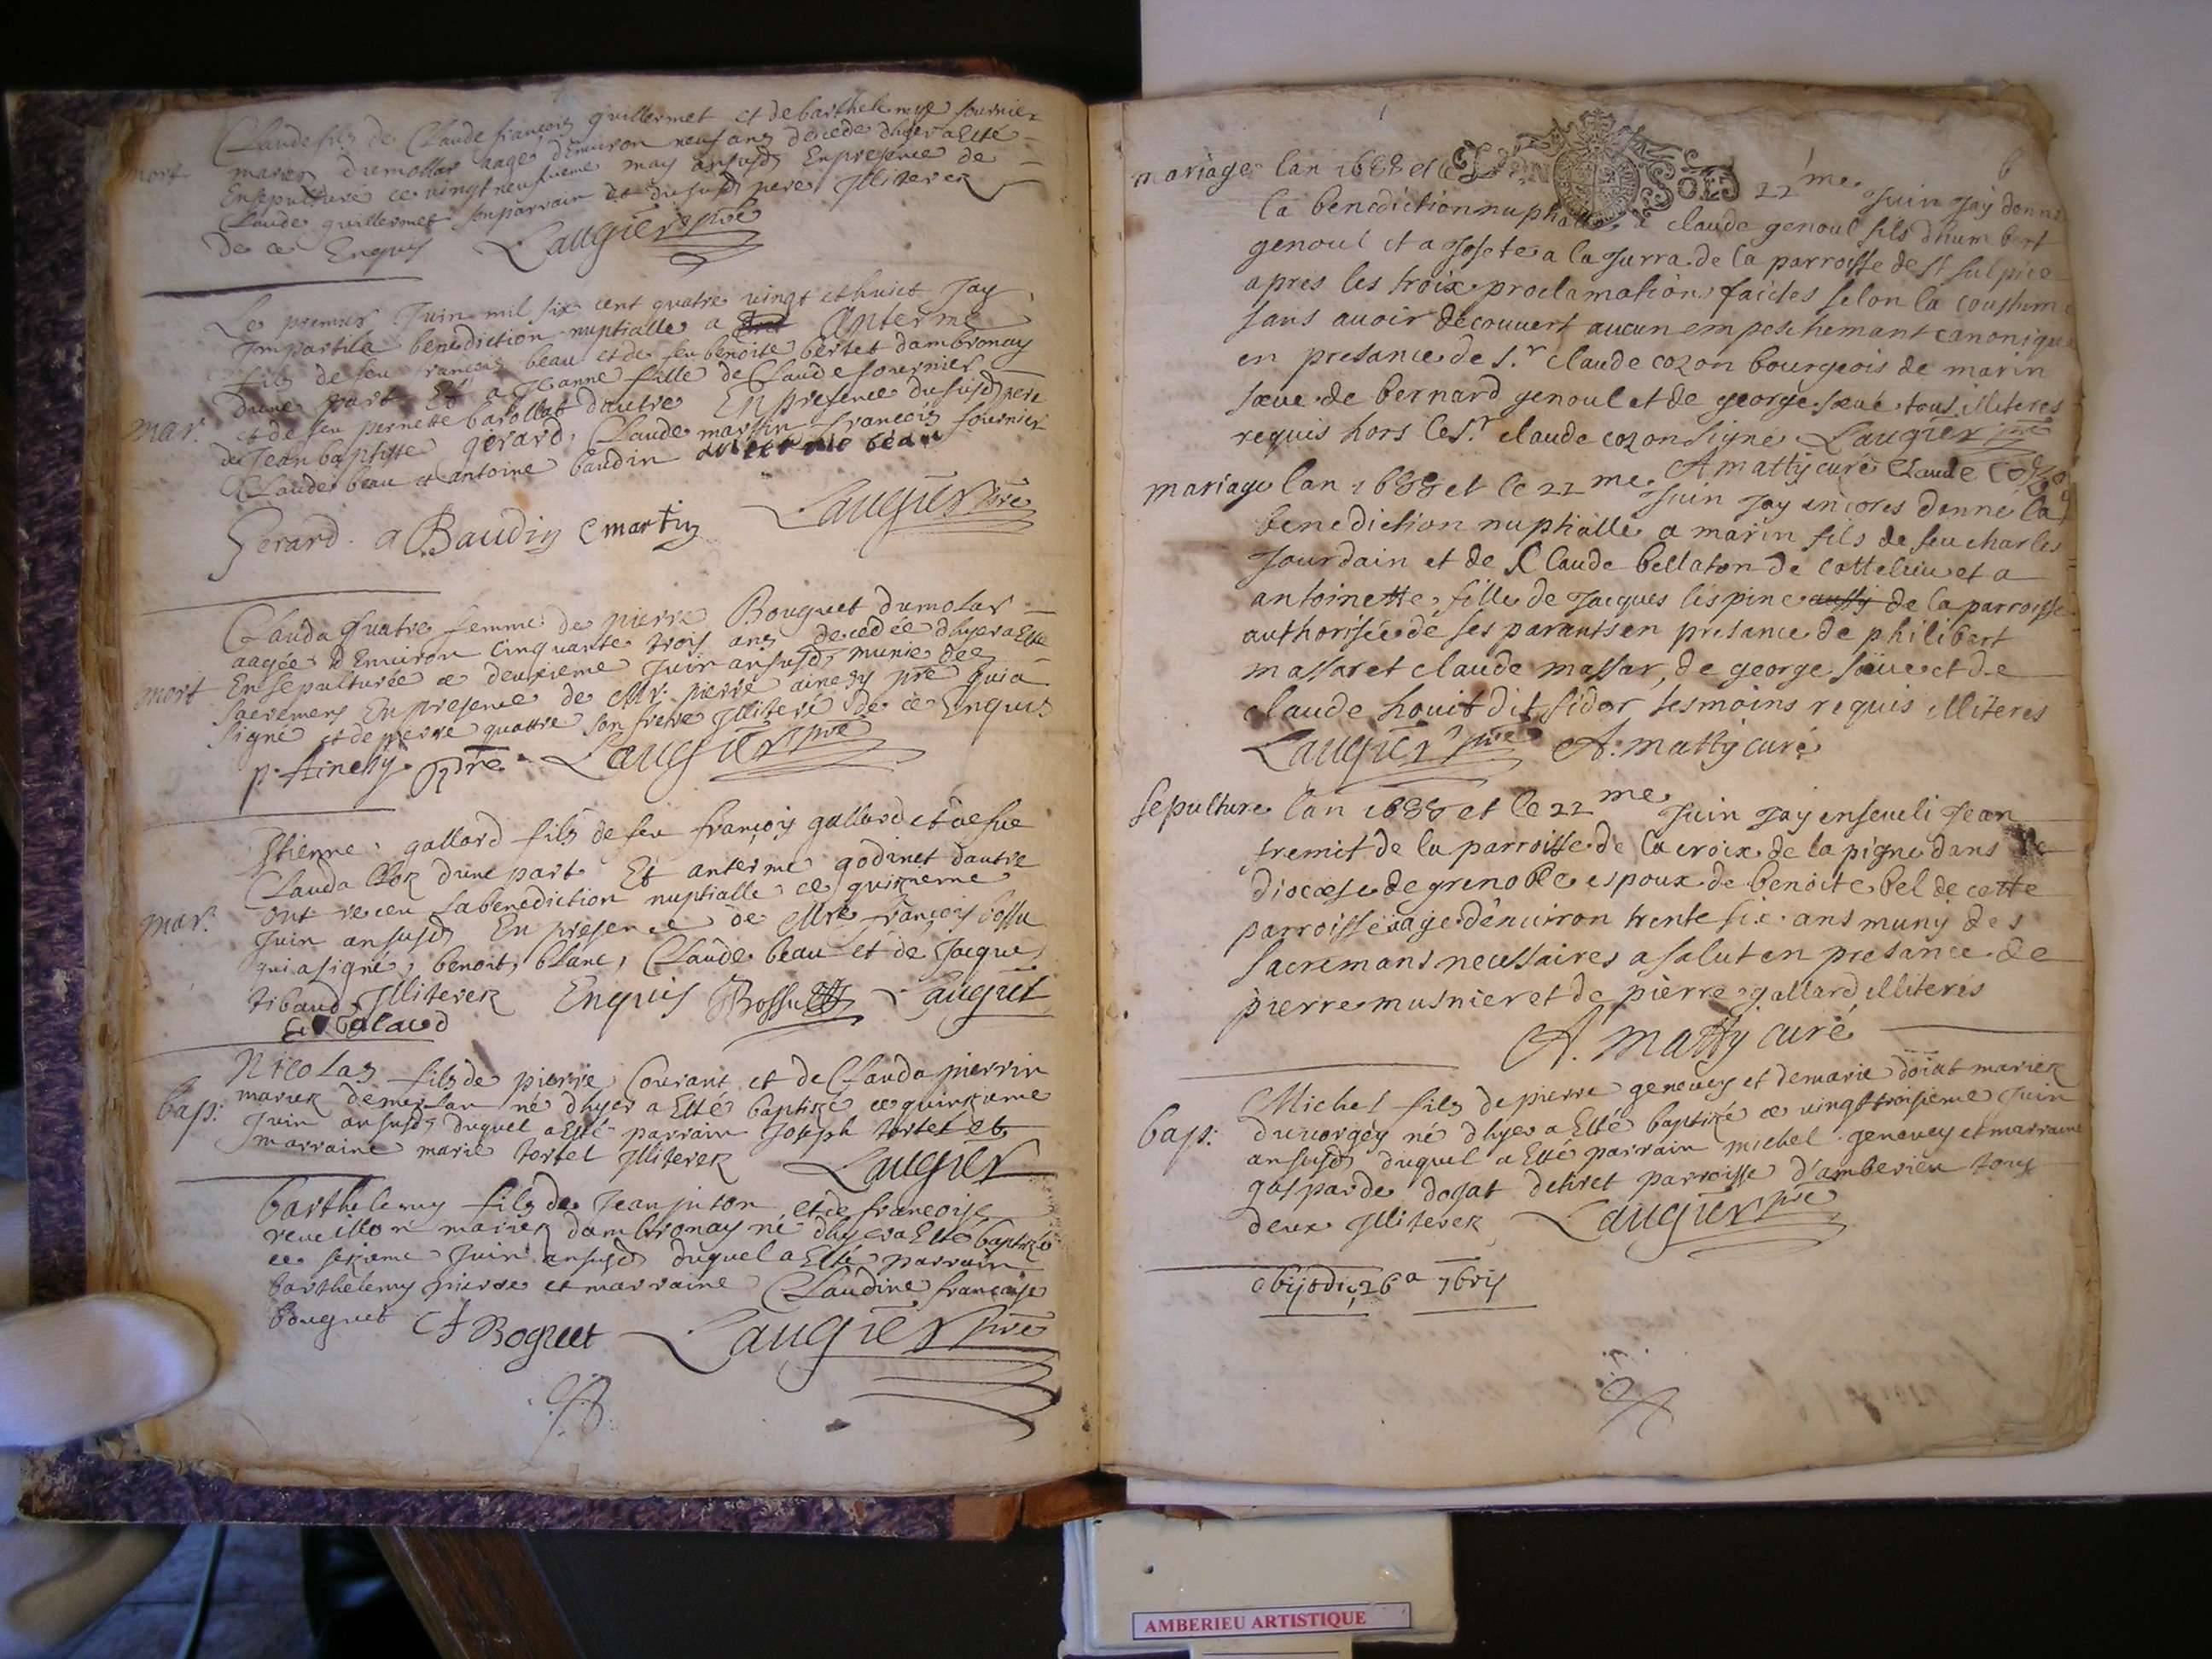 Claude fils de Claude françois guillermet et de barthelemye fournier
mort
mariez dumollar aagé denviron neuf ans decede dhyer a Esté
Ensepulturé ce vingt neufvieme may an susd En presence de
Claude guillermet son parrain et du susd pere Illiterez
de ce Enquis Laugier pbre
Le premier Juin mil six cent quatre vingt et huict Jay
Imparti la benediction nuptialle a Anterme
fils de feu françois beau et de feu benoite bertet dambronay
dune part Et a Jeanne fille de Claude fournier
mar.
et de feu pernette barollat dautre En presence du susd pere
de Jean baptiste gerard, Claude martin francois fournier
Claude beau et antoine baudin
Gerard. a Baudin C martin Laugier pbre
Clauda quatre femme de pierre Bouguet dumolar
aagée dEnviron Cinquante trois ans decedée dhyer a Esté
mort
Ensepulturée ce deuxieme Juin an susd, munie des
sacremens En presence de Mr. pierre ainesy pre qui a
signé et de pierre quattre son frere Illiteré de ce Enquis
p. Ainesy pre Laugier pbre
Estienne gallard fils de feu françois gallard et de fue
Clauda dune part Et anterme godinet dautre
mar.
ont receu la benediction nuptialle ce quinzieme
Juin an susd En presence de Mre françois bossu
qui a signé, benoit, blanc, Claude beau et de Jacque
tibaud Illiterez Enquis Bossu Laugier
Nicolas fils de pierre Courant et de Clauda pierrin
bap:
mariez de né dhyer a Esté baptizé ce quinzieme
Juin an susd duquel a Esté parrain Joseph tortet et
marraine marie tortet Illiterez Laugier
barthelemy fils de Jean juton et de françoise
reveillon mariez dambronay né dhyer a Esté baptizé
ce sezieme Juin an susd duquel a Esté parrain
barthelemy pierre et marraine Claudine françoise
bouguet Cf Boguet Laugier pbre
6
mariage lan 1688 et le 22me Juin Jay donné
la benediction nuptialle a claude genoul fils dhumbert
genoul et a Josete a la Jurra de la parroisse de St sulpice
apres les troix proclamations faictes selon la coustume
sans avoir decouvert aucun empeschemant canonique
en presance de s.r claude cozon bourgeois de marin
sæue de bernard genoul et de george sæué tous illiteres
requis hors le s.r claude cozon signé Laugier pbre
A matty curé Claude Cozon
mariage lan 1688 et le 22me Juin Jay encores donné la
benediction nuptialle a marin fils de feu charles
Jourdain et de Claude bellaton de cottelieu et a
antoinette fille de Jacques lespine aussy de la parroisse
authorisée de ses parants en presance de philibert
massar et claude massar, de george sæue et de
claude houit dit fidor tesmoins requis illiteres
Laugier pbre A. matty curé
sepulture lan 1688 et le 22me Juin Jay enseveli Jean
tremit de la parroisse de la croix de la pigne dans le
diocæse de grenoble espoux de benoite bel de cette
parroisse aagé dénviron trente six ans muny des
sacremans necessaires a salut en presance de
pierre musnier et de pièrre gallard illiteres
A. matty curé
Michel fils de pierre genevey et de marie doiat mariez
bap:
du né dhyer a Esté baptizé ce vingt troisieme Juin
an susd, duquel a Esté parrain michel genevey et marraine
gasparde dojat de parroisse d'amberieu tous
deux Illiterez Laugier pbre
AMBERIEU ARTISTIQUE